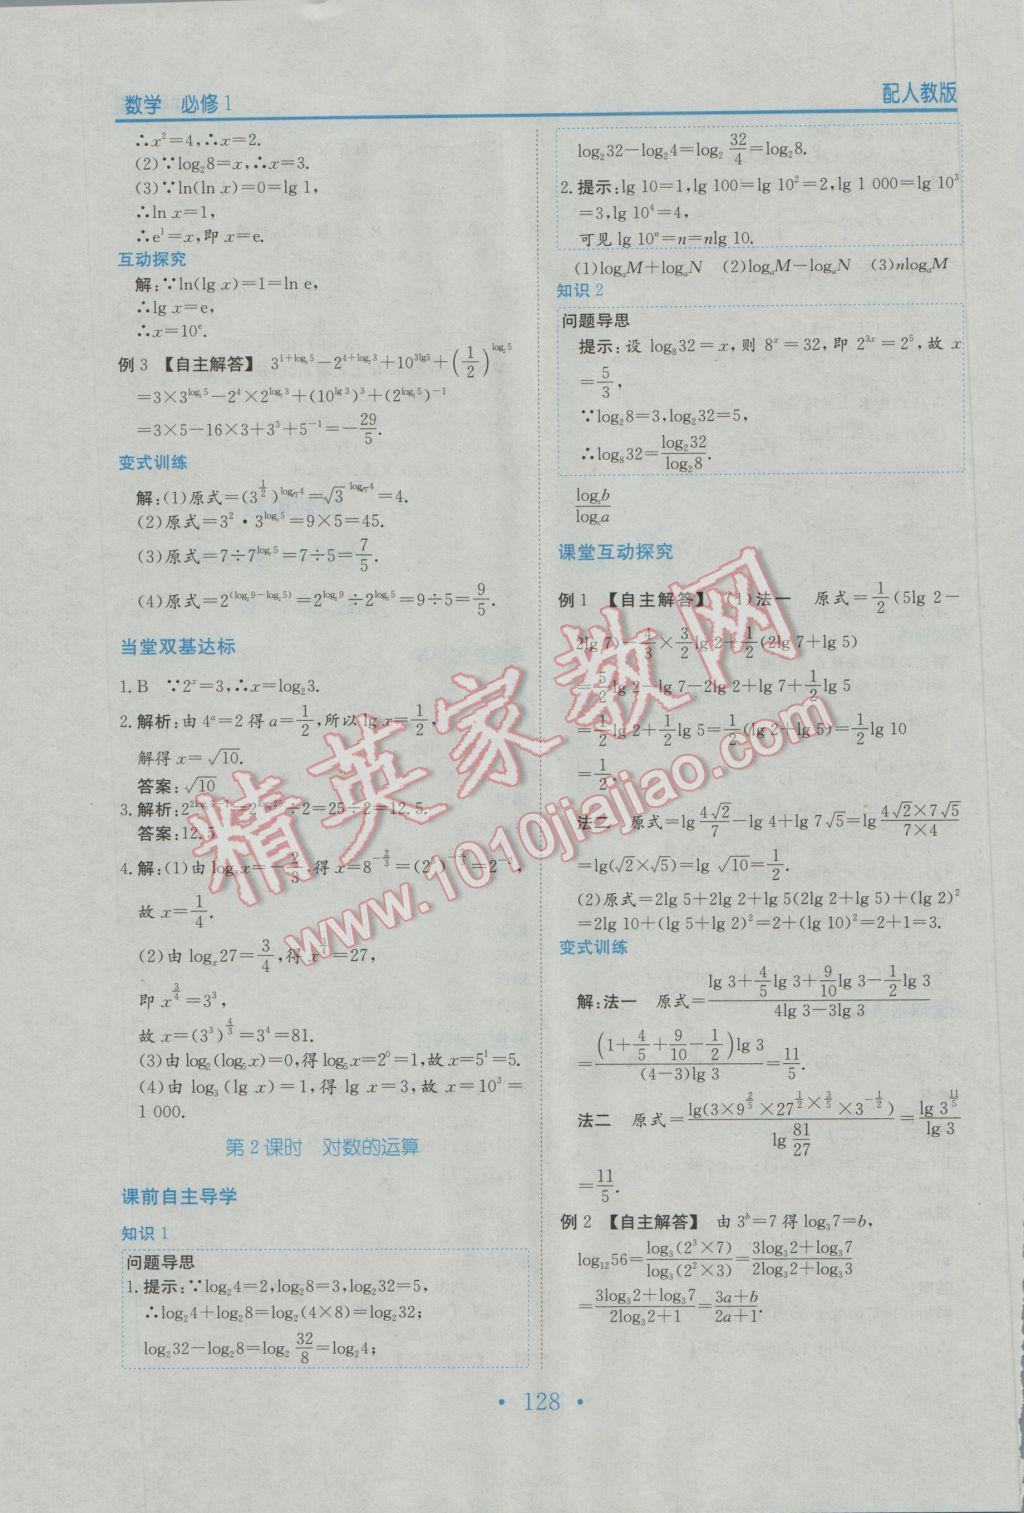 数学 必修1
配人教版
∴x²=4,∴x=2.
(2)∵log₂8=x,∴x=3.
(3)∵ln(ln x)=0=lg 1,
∴ln x=1,
∴e¹=x,即 x=e.
互动探究
解:∵ln(lg x)=1=ln e,
∴lg x=e,
∴x=10^e.
例 3 【自主解答】 3^{1+log₃5}−2^{4+log₂3}+10^{3lg3}+(1/2)^{log₂5}
=3×3^{log₃5}−2⁴×2^{log₂3}+(10^{lg 3})³+(2^{log₂5})⁻¹
=3×5−16×3+3³+5⁻¹=−29/5.
变式训练
解:(1)原式=(3^{1/2})^{log_{√3}4}=√3^{log_{√3}4}=4.
(2)原式=3²·3^{log₃5}=9×5=45.
(3)原式=7÷7^{log₇5}=7÷5=7/5.
(4)原式=2^{(log₂9−log₂5)}=2^{log₂9}÷2^{log₂5}=9÷5=9/5.
当堂双基达标
1.B ∵2ˣ=3,∴x=log₂3.
2.解析:由 4ᵃ=2 得 a=1/2,所以 lg x=1/2,
解得 x=√10.
答案:√10
3.解析:2^{2log₂5−1}=2^{log₂25}÷2=25÷2=12.5.
答案:12.5
4.解:(1)由 log₈x=−2/3,得 x=8^{−2/3}=(2³)^{−2/3}=2⁻²,
故 x=1/4.
(2)由 logₓ27=3/4,得 x^{3/4}=27,
即 x^{3/4}=3³,
故 x=(3³)^{4/3}=3⁴=81.
(3)由 log₂(log₅x)=0,得 log₅x=2⁰=1,故 x=5¹=5.
(4)由 log₃(lg x)=1,得 lg x=3,故 x=10³=
1 000.
第 2 课时 对数的运算
课前自主导学
知识 1
问题导思
1.提示:∵log₂4=2,log₂8=3,log₂32=5,
∴log₂4+log₂8=log₂(4×8)=log₂32;
log₂32−log₂8=log₂ 32/8=log₂4;
log₂32−log₂4=log₂ 32/4=log₂8.
2.提示:lg 10=1,lg 100=lg 10²=2,lg 1 000=lg 10³
=3,lg 10⁴=4,
可见 lg 10ⁿ=n=nlg 10.
(1)logₐM+logₐN (2)logₐM−logₐN (3)nlogₐM
知识 2
问题导思
提示:设 log₈32=x,则 8ˣ=32,即 2³ˣ=2⁵,故 x
=5/3,
∵log₂8=3,log₂32=5,
∴log₈32=log₂32/log₂8.
log_c b/log_c a
课堂互动探究
例 1 【自主解答】 (1)法一 原式=1/2(5lg 2−
2lg 7)−4/3×3/2lg 2+1/2(2lg 7+lg 5)
=5/2lg 2−lg 7−2lg 2+lg 7+1/2lg 5
=1/2lg 2+1/2lg 5=1/2(lg 2+lg 5)=1/2lg 10
=1/2.
法二 原式=lg 4√2/7−lg 4+lg 7√5=lg (4√2×7√5)/(7×4)
=lg(√2×√5)=lg √10=1/2.
(2)原式=2lg 5+2lg 2+lg 5(2lg 2+lg 5)+(lg 2)²
=2lg 10+(lg 5+lg 2)²=2+(lg 10)²=2+1=3.
变式训练
解:法一 原式=(lg 3+4/5lg 3+9/10lg 3−1/2lg 3)/(4lg 3−3lg 3)
=(1+4/5+9/10−1/2)lg 3/((4−3)lg 3)=11/5.
法二 原式=lg(3×9^{2/5}×27^{1/2×3/5}×3^{−1/2})/lg(81/27)=lg 3^{11/5}/lg 3
=11/5.
例 2 【自主解答】 由 3ᵇ=7 得 log₃7=b,
log₁₂56=log₃(2³×7)/log₃(2²×3)=(3log₃2+log₃7)/(2log₃2+log₃3)
=(3log₃2+log₃7)/(2log₃2+1)=(3a+b)/(2a+1).
• 128 •
精英家教网
www.1010jiajiao.com